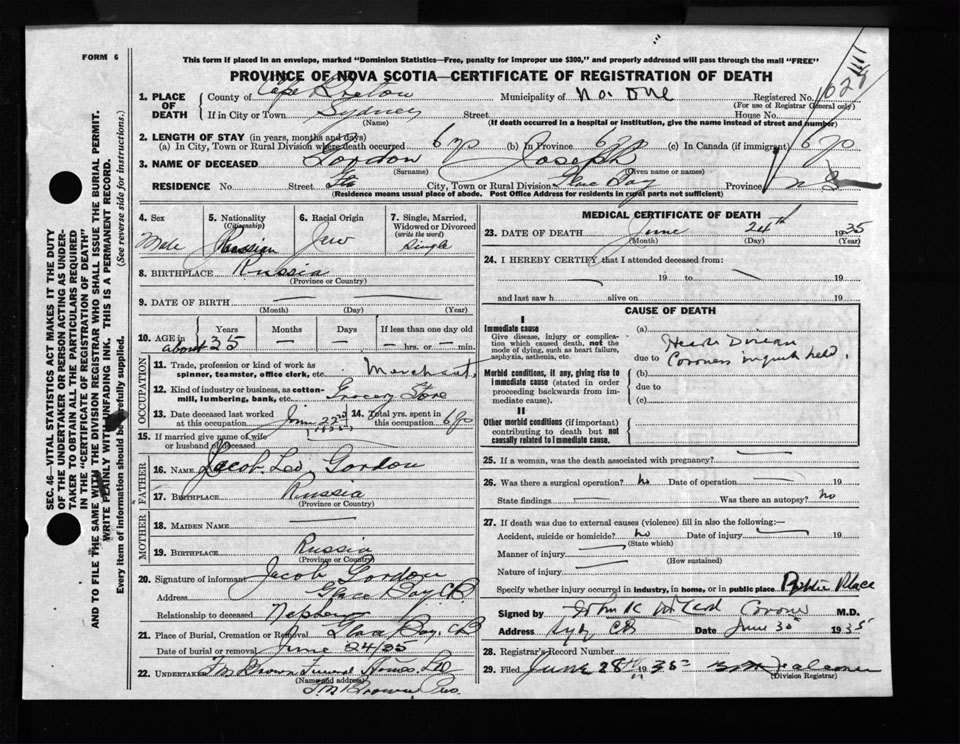 FORM 6
This form if placed in an envelope, marked "Dominion Statistics—Free, penalty for improper use $300," and properly addressed will pass through the mail "FREE"
PROVINCE OF NOVA SCOTIA—CERTIFICATE OF REGISTRATION OF DEATH
1. PLACE OF DEATH County of Cape Breton Municipality of No. One Registered No.
(For use of Registrar General only)
If in City or Town Sydney Street House No.
(Name) (If death occurred in a hospital or institution, give the name instead of street and number)
2. LENGTH OF STAY (in years, months and days)
(a) In City, Town or Rural Division where death occurred 6 yo (b) In Province 6 yo (c) In Canada (if immigrant) 6 yo
3. NAME OF DECEASED Gordon Joseph
(Surname) (Given name or names)
RESIDENCE No. Street City, Town or Rural Division Glace Bay Province N S
(Residence means usual place of abode. Post Office Address for residents in rural parts not sufficient)
4. Sex Male
5. Nationality (Citizenship) Russian
6. Racial Origin Jew
7. Single, Married, Widowed or Divorced (write the word) Single
8. BIRTHPLACE Russia
(Province or Country)
9. DATE OF BIRTH —
(Month) (Day) (Year)
10. AGE in Years Months Days If less than one day old
about 35 — — — hrs. or — min.
OCCUPATION
11. Trade, profession or kind of work as spinner, teamster, office clerk, etc. Merchant
12. Kind of industry or business, as cotton-mill, lumbering, bank, etc. Grocery Store
13. Date deceased last worked at this occupation 14. Total yrs. spent in this occupation 6 yo
15. If married give name of wife or husband of deceased
FATHER
16. NAME Jacob Leo Gordon
17. BIRTHPLACE Russia
(Province or Country)
MOTHER
18. MAIDEN NAME —
19. BIRTHPLACE Russia
(Province or Country)
20. Signature of informant Jacob Gordon
Address Glace Bay CB
Relationship to deceased Nephew
21. Place of Burial, Cremation or Removal Glace Bay, CB
Date of burial or removal June 24/35
22. UNDERTAKER T M Brown Funeral Home Ltd
(Name and address)
T M Brown, Pres.
MEDICAL CERTIFICATE OF DEATH
23. DATE OF DEATH June 24th 1935
(Month) (Day) (Year)
24. I HEREBY CERTIFY that I attended deceased from:
— 19 to — 19
and last saw h alive on — 19
CAUSE OF DEATH
I
Immediate cause
Give disease, injury or complication which caused death, not the mode of dying, such as heart failure, asphyxia, asthenia, etc.
(a) Heart Disease
due to Coroners inquest held.
Morbid conditions, if any, giving rise to immediate cause (stated in order proceeding backwards from immediate).
(b)
due to
(c)
II
Other morbid conditions (if important) contributing to death but not causally related to immediate cause.
25. If a woman, was the death associated with pregnancy? —
26. Was there a surgical operation? No Date of operation — 19
State findings — Was there an autopsy? No
27. If death was due to external causes (violence) fill in also the following:—
Accident, suicide or homicide? no Date of injury — 19
(State which)
Manner of injury —
(How sustained)
Nature of injury —
Specify whether injury occurred in industry, in home, or in public place Public Place
Signed by Coroner M.D.
Address Sydy CB Date June 30 1935
28. Registrar's Record Number
29. Filed June 28th 1935
(Division Registrar)
SEC. 46—VITAL STATISTICS ACT MAKES IT THE DUTY
OF THE UNDERTAKER OR PERSON ACTING AS UNDER-
TAKER TO OBTAIN ALL THE PARTICULARS REQUIRED
IN THE "CERTIFICATE OF REGISTRATION OF DEATH"
AND TO FILE THE SAME WITH THE DIVISION REGISTRAR WHO SHALL ISSUE THE BURIAL PERMIT.
WRITE PLAINLY WITH UNFADING INK. THIS IS A PERMANENT RECORD.
Every item of information should be carefully supplied. (See reverse side for instructions.)